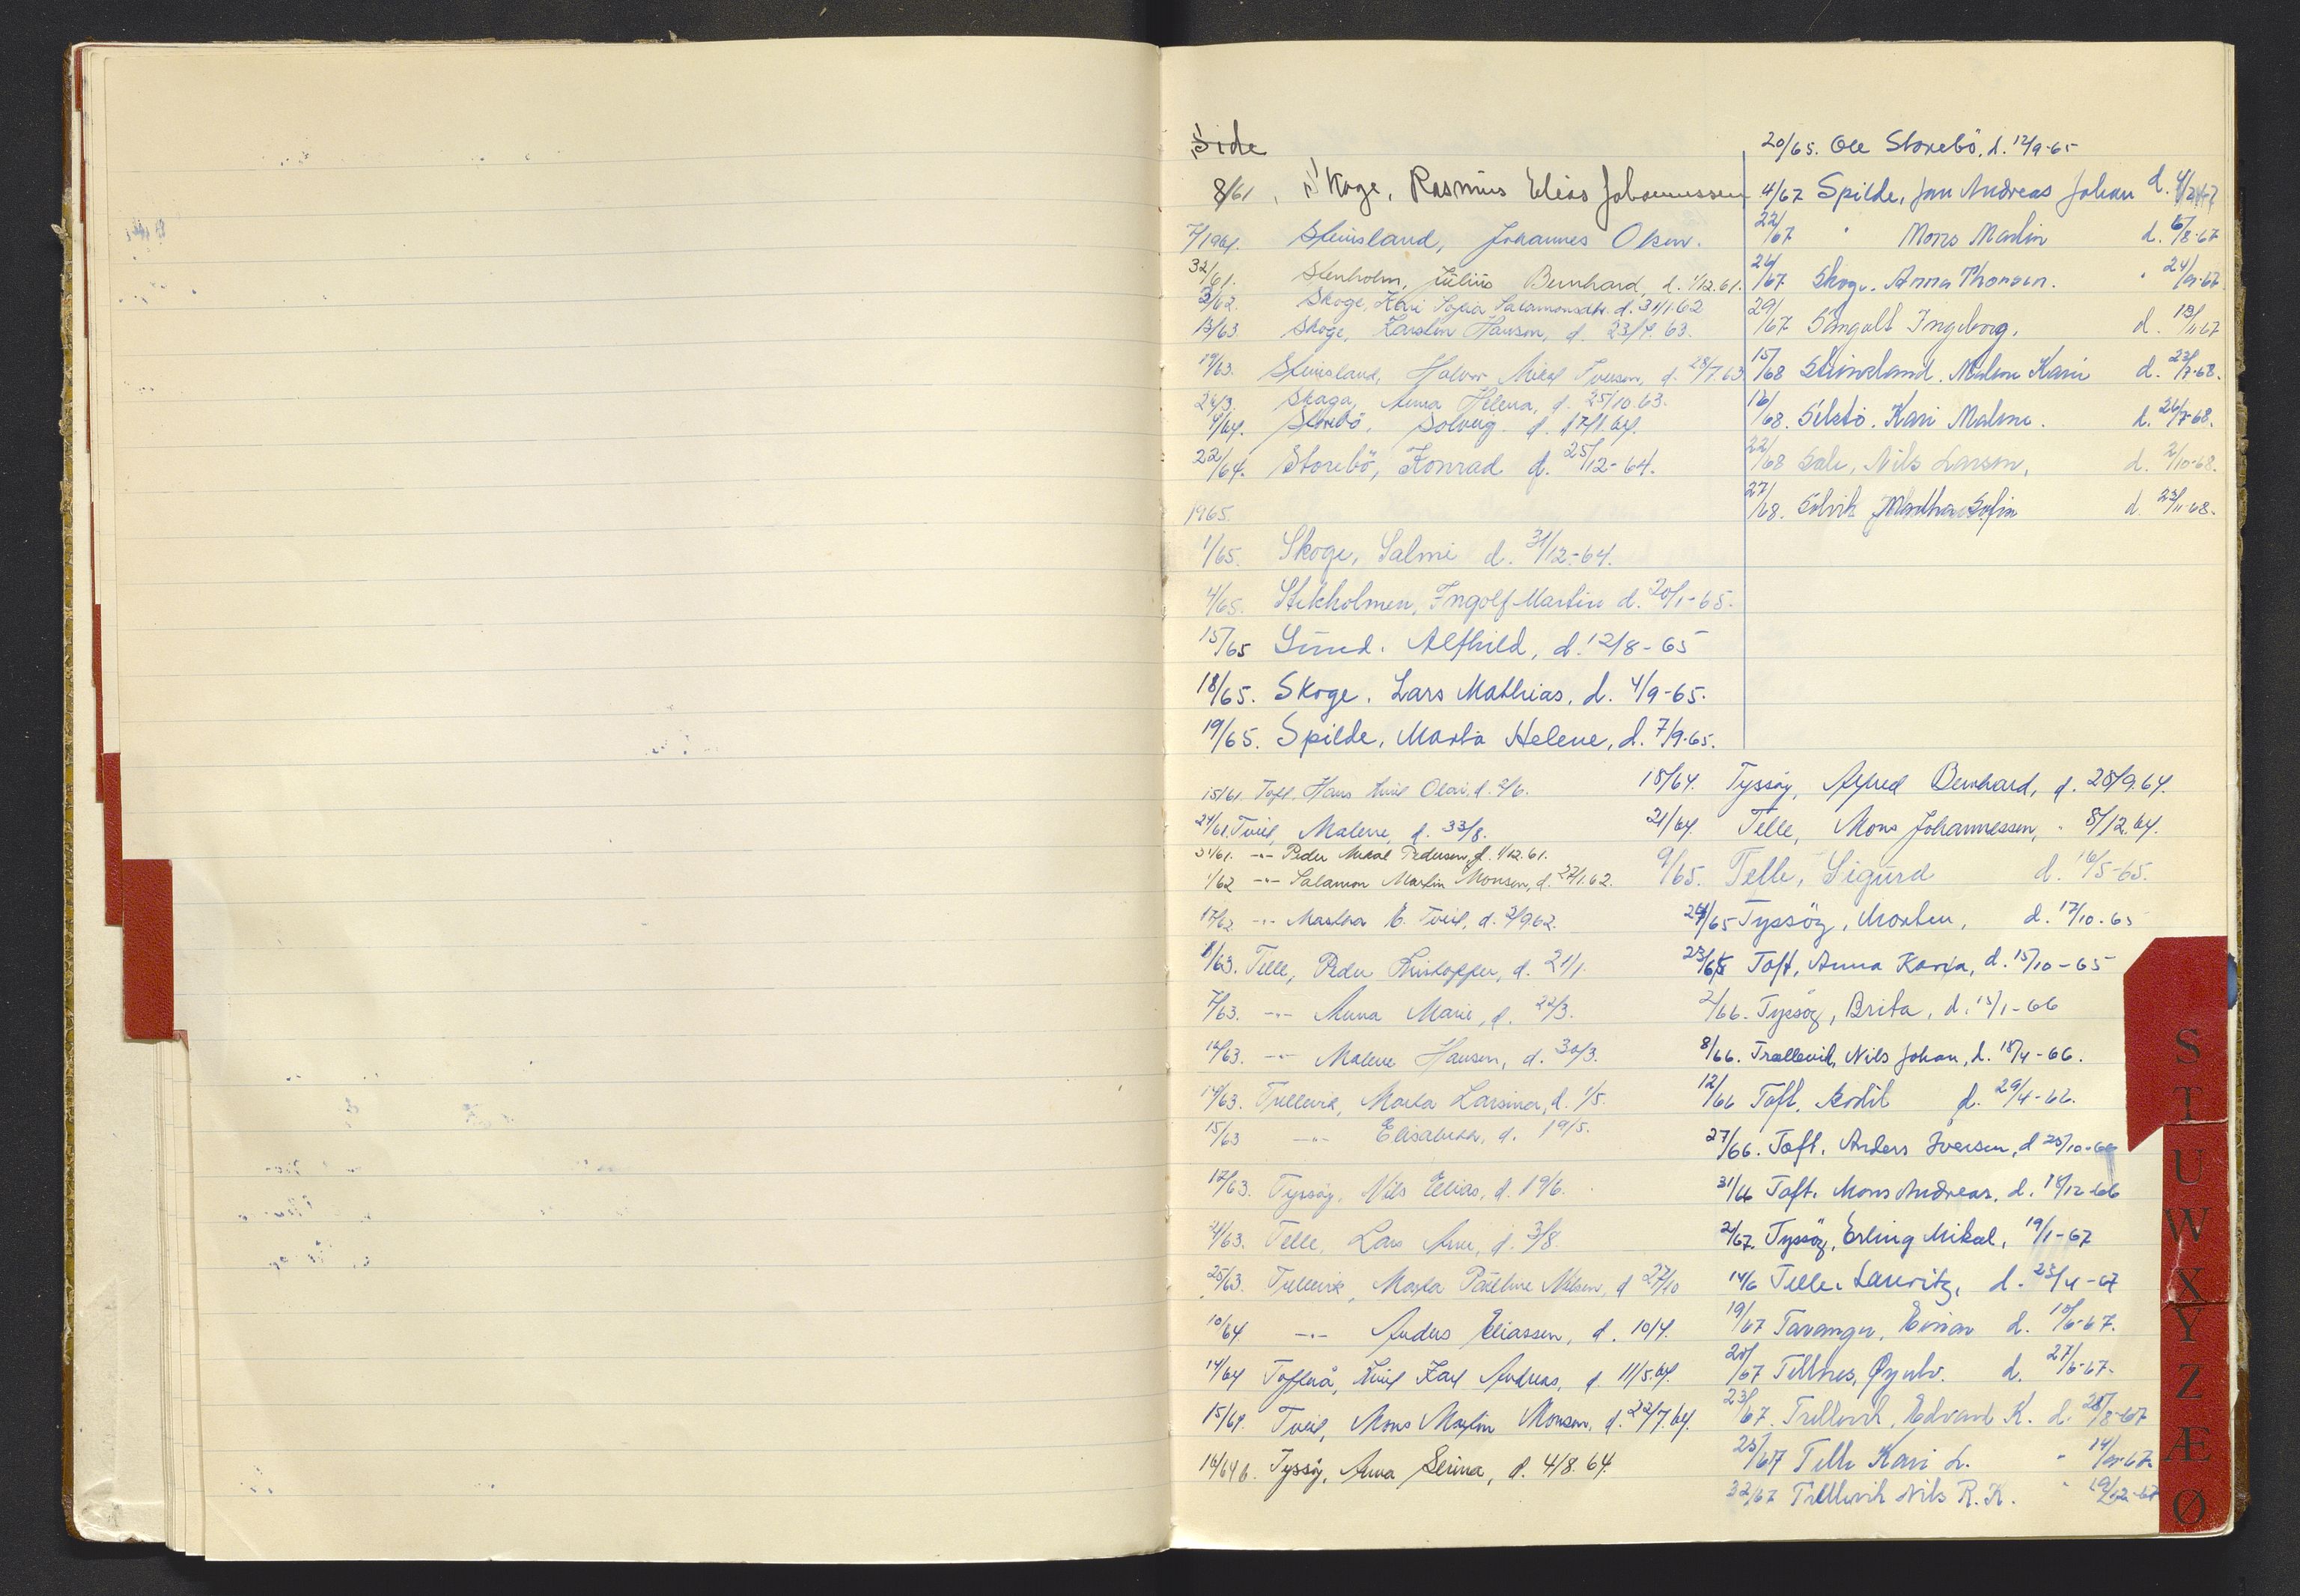 Side
8/61, Skoge, Rasmus Elias Johannessen
7/1961. Steinsland, Johannes Olsen.
32/61. Stenholm, Julius Bernhard, d. 1/12.61.
3/62. Skoge, Kari Sofia Salamonsdtr. d. 31/1.62
13/63. Skoge, Karsten Hansen, d. 23/4.63.
19/63. Steinsland, Halvor Mikal Iversen, d. 28/7.63
26/3. Skaga, Anna Helena, d. 25/10.63.
4/64. Storebö, Solveig d. 17/1.64.
22/64. Storebö, Konrad d. 25/12-64.
1965.
1/65. Skoge, Salmi d. 31/12-64.
4/65. Stekholmen, Ingolf Martin d. 20/1-65.
15/65 Sund. Alfhild, d. 12/8-65
18/65. Skoge. Lars Mathias. d. 4/9-65.
19/65. Spilde, Marta Helene, d. 7/9-65.
20/65. Ole Storebö. d. 12/9-65
4/67 Spilde, Jan Andreas Johan d.
22/67 " Mons Martin d. 6/8-67
26/67 Skoge. Anna Thomsen. " 24/9-67
29/67 Sangolt Ingeborg. d. 13/11-67
15/68 Steinsland. Malene Kari d. 23/7-68.
16/68. Kari Malene. d. 26/7-68.
22/68 Sale, Nils Larsen, d. 2/10-68.
27/68. Solvik Martha Sofie d. 23/11-68.
15/61. Toft. Hans Emil Olai, d. 2/6.
24/61. Tveit, Malene, d. 33/8.
31/61. -"- Peder Mikal Pedersen, d. 1/12.61.
1/62 -"- Salamon Martin Monsen, d. 27/1.62.
17/62 -"- Martha E. Tveit, d. 2/9.62.
1/63. Telle, Peder Kristoffer, d. 21/1.
7/63. -"- Anna Marie, d. 22/3.
12/63. -"- Malene Hansen, d. 30/3.
14/63. Trellevik, Marta Larsina, d. 1/5.
15/63 -"- Elisabeth, d. 19/5.
17/63. Tyssöy, Nils Elias, d. 19/6.
21/63. Telle, Lars Arne, d. 3/8.
25/63. Trellevik, Marta Pauline Nilsen, d 27/10
10/64 -"- Anders Eliassen, d. 10/4.
14/64 Tofterå, Emil Karl Andreas, d. 11/5.64.
15/64. Tveit, Mons Martin Monsen, d. 22/7.64.
16/64 b. Tyssöy, Anna Serina, d. 4/8.64.
18/64. Tyssöy, Alfred Bernhard, d. 28/9.64.
21/64 Telle, Mons Johannessen, " 8/12.64.
9/65. Telle, Sigurd d. 16/5-65.
24/65 Tyssöy, Morten, d. 17/10-65
23/65 Toft, Anna Karia, d. 15/10-65
2/66. Tyssöy, Brita, d. 15/1-66
8/66. Trællevik, Nils Johan, d. 18/4-66.
12/66 Toft. Bodil d. 29/4-66.
27/66. Toft. Anders Iversen, d 25/10-66
31/66 Toft. Mons Andreas. d. 18/12-66
2/67. Tyssöy, Erling Mikal, 19/1-67
14/6 Telle. Lauritz, d. 23/4-67
19/67 Taranger, Einar d. 18/6-67.
20/67 Tellnes, Øynlv. d. 27/6-67-
23/67. Trellevik, Edvard K. d. 28/8-67
25/67 Telle Kari L. " 14/9-67-
32/67 Trellevik Nils R. K. " 19/12-67
S
T
U
W
X
Y
Z
Æ
Ø